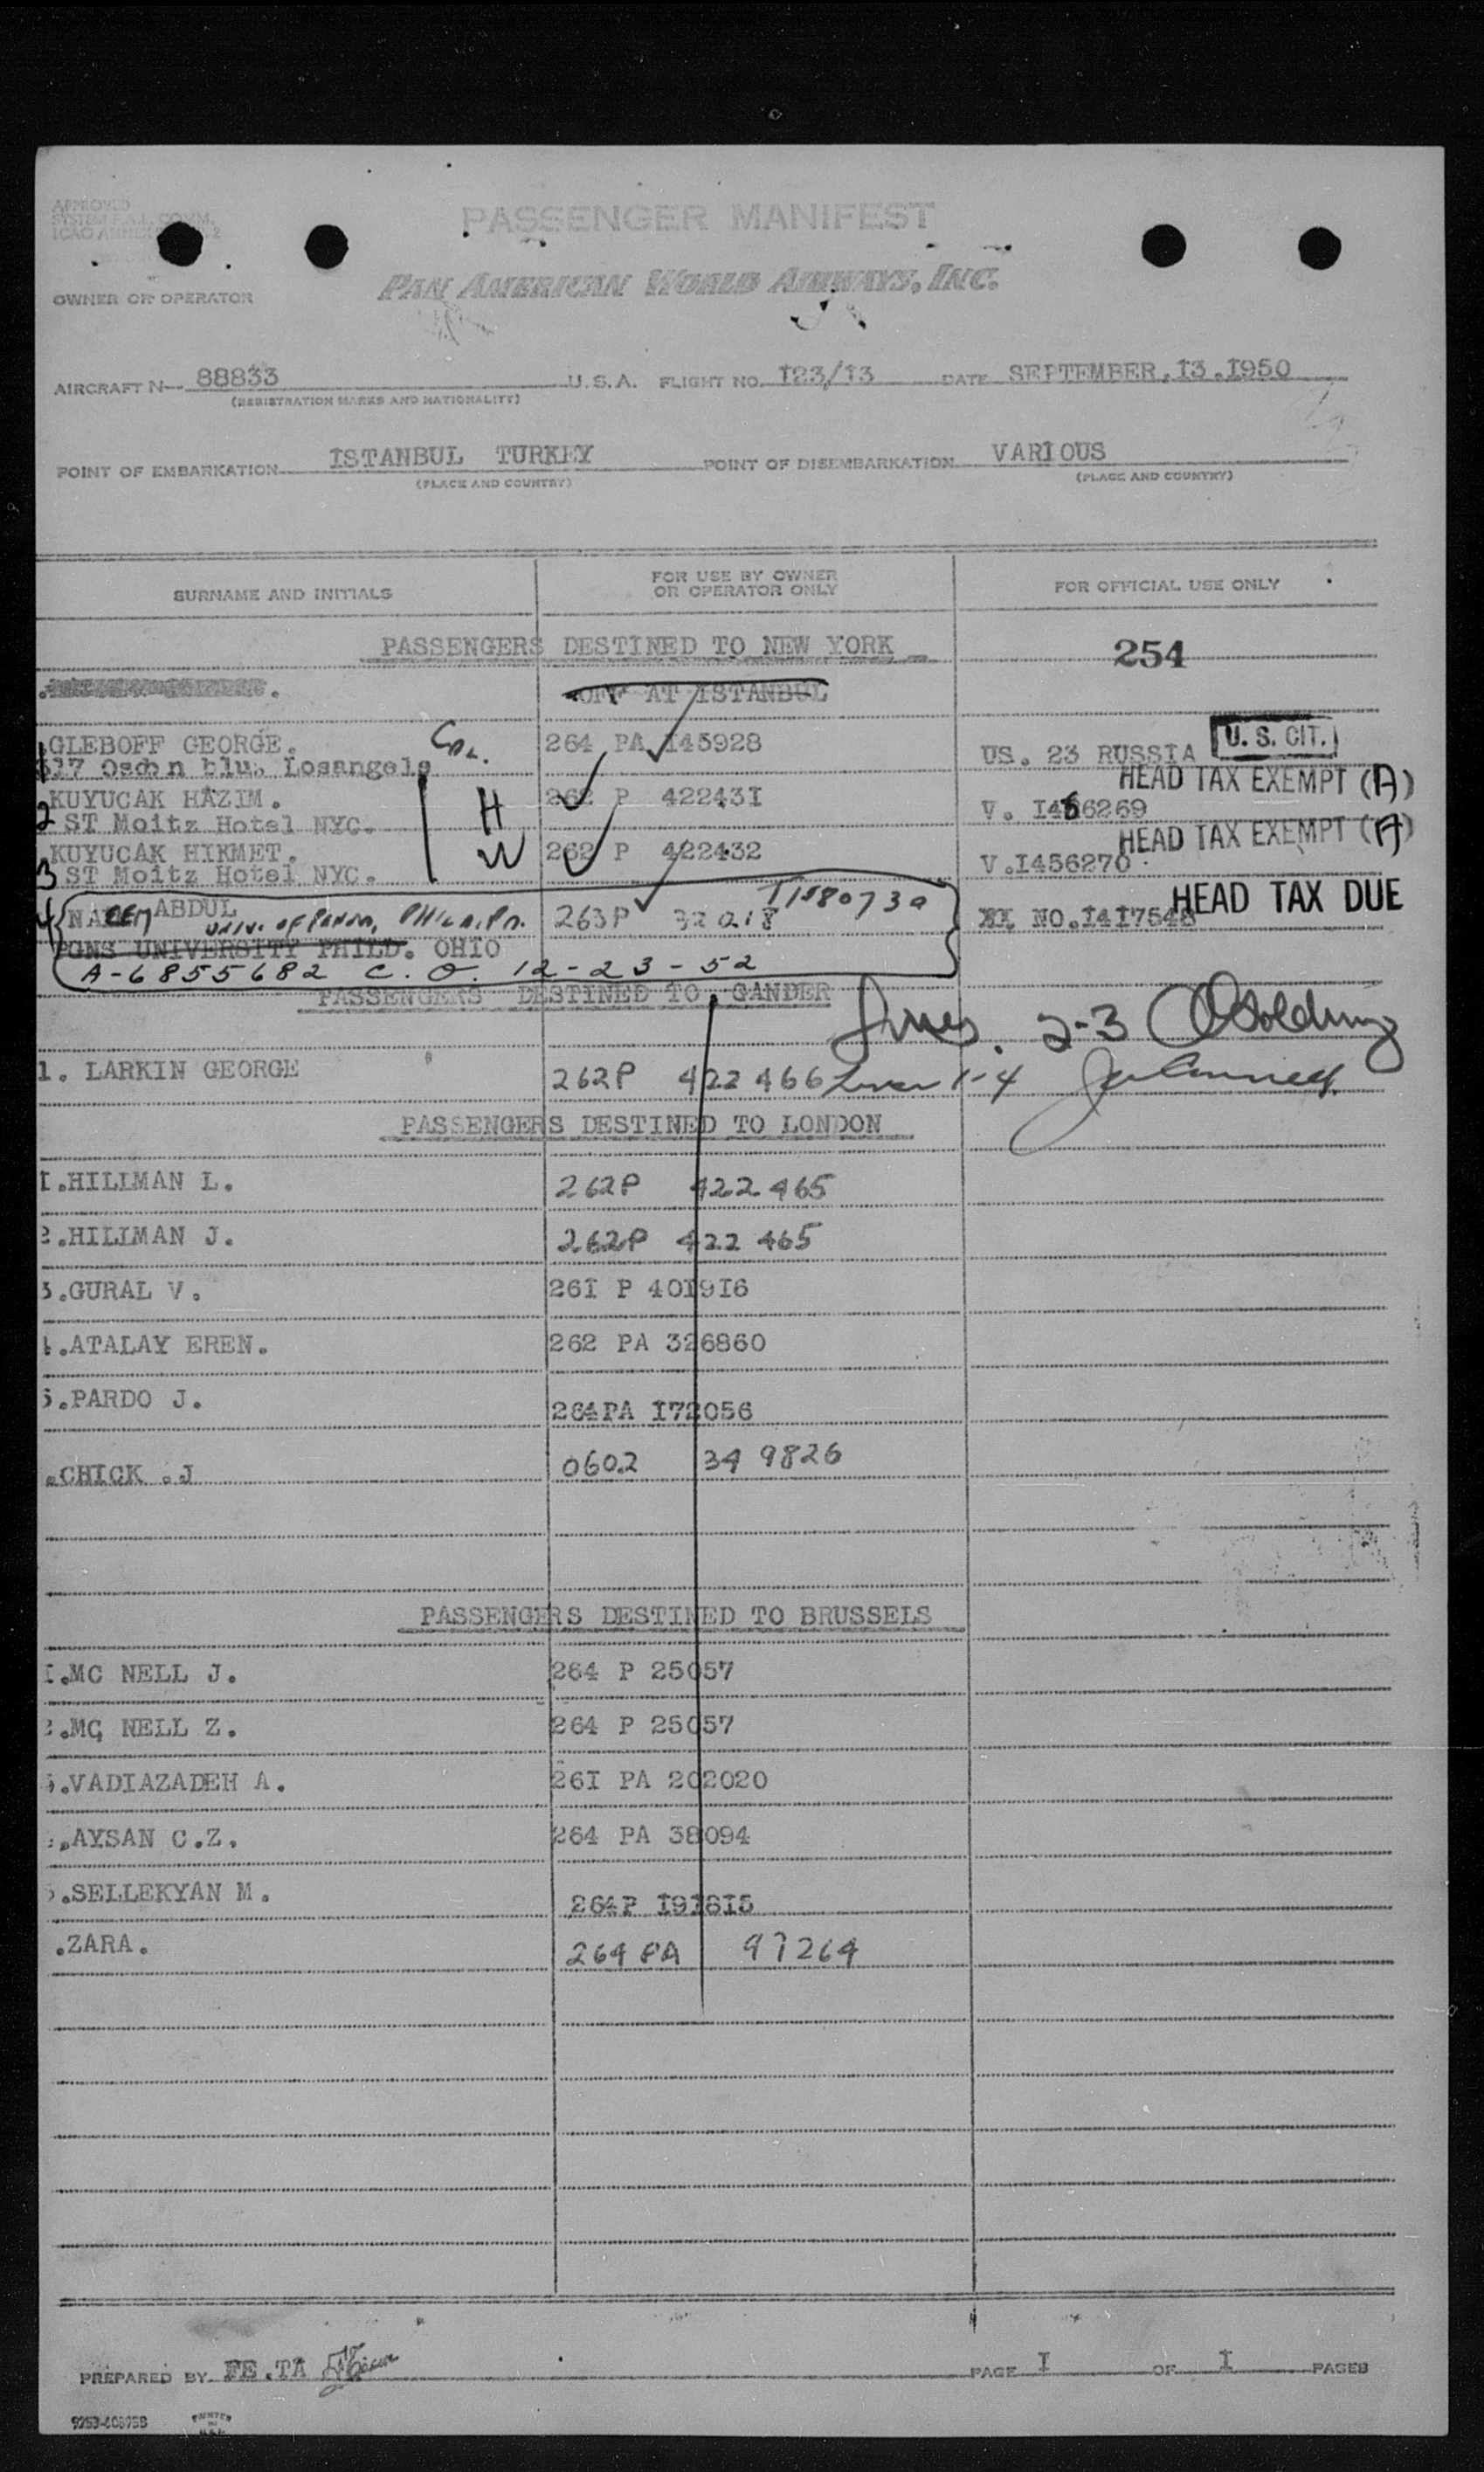 APPROVED
SYSTEM F.A.L. COMM.
PASSENGER MANIFEST
OWNER OR OPERATOR PAN AMERICAN WORLD AIRWAYS, INC.
AIRCRAFT N- 88833 U.S.A. FLIGHT NO. I23/I3 DATE SEPTEMBER.I3.I950
(REGISTRATION MARKS AND NATIONALITY)
POINT OF EMBARKATION ISTANBUL TURKEY POINT OF DISEMBARKATION VARIOUS
(PLACE AND COUNTRY) (PLACE AND COUNTRY)
SURNAME AND INITIALS FOR USE BY OWNER OR OPERATOR ONLY FOR OFFICIAL USE ONLY
PASSENGERS DESTINED TO NEW YORK 254
OFF AT ISTANBUL
GLEBOFF GEORGE. 264 PA I45928 US. 23 RUSSIA U.S. CIT.
Losangels
HEAD TAX EXEMPT (A)
2 KUYUCAK HAZIM. H 262 P 42243I V. I456269
ST Moitz Hotel NYC.
HEAD TAX EXEMPT (A)
3 KUYUCAK HIKMET. W 262 P 422432 V.I456270
ST Moitz Hotel NYC.
HEAD TAX DUE
4 ABDUL 263P NO.I4I7548
UNIVERSITY PHILD. OHIO
A-6855682 C. O. 12-23-52
PASSENGERS DESTINED TO GANDER
Lines. 2-3
1. LARKIN GEORGE 262P 422 466 Lines 1-4
PASSENGERS DESTINED TO LONDON
I.HILIMAN L. 262P 422 465
2.HILIMAN J. 262P 422 465
3.GURAL V. 26I P 40I9I6
4.ATALAY EREN. 262 PA 326860
5.PARDO J. 264PA I72056
.CHICK .J 0602 34 9826
PASSENGERS DESTINED TO BRUSSELS
I.MC NELL J. 264 P 25057
2.MC NELL Z. 264 P 25057
3.VADIAZADEH A. 26I PA 202020
.AYSAN C.Z. 264 PA 38094
5.SELLEKYAN M. 264P I9I8I5
.ZARA. 264 PA 97264
PREPARED BY FE.TA PAGE I OF I PAGES
PRINTED IN U.S.A.